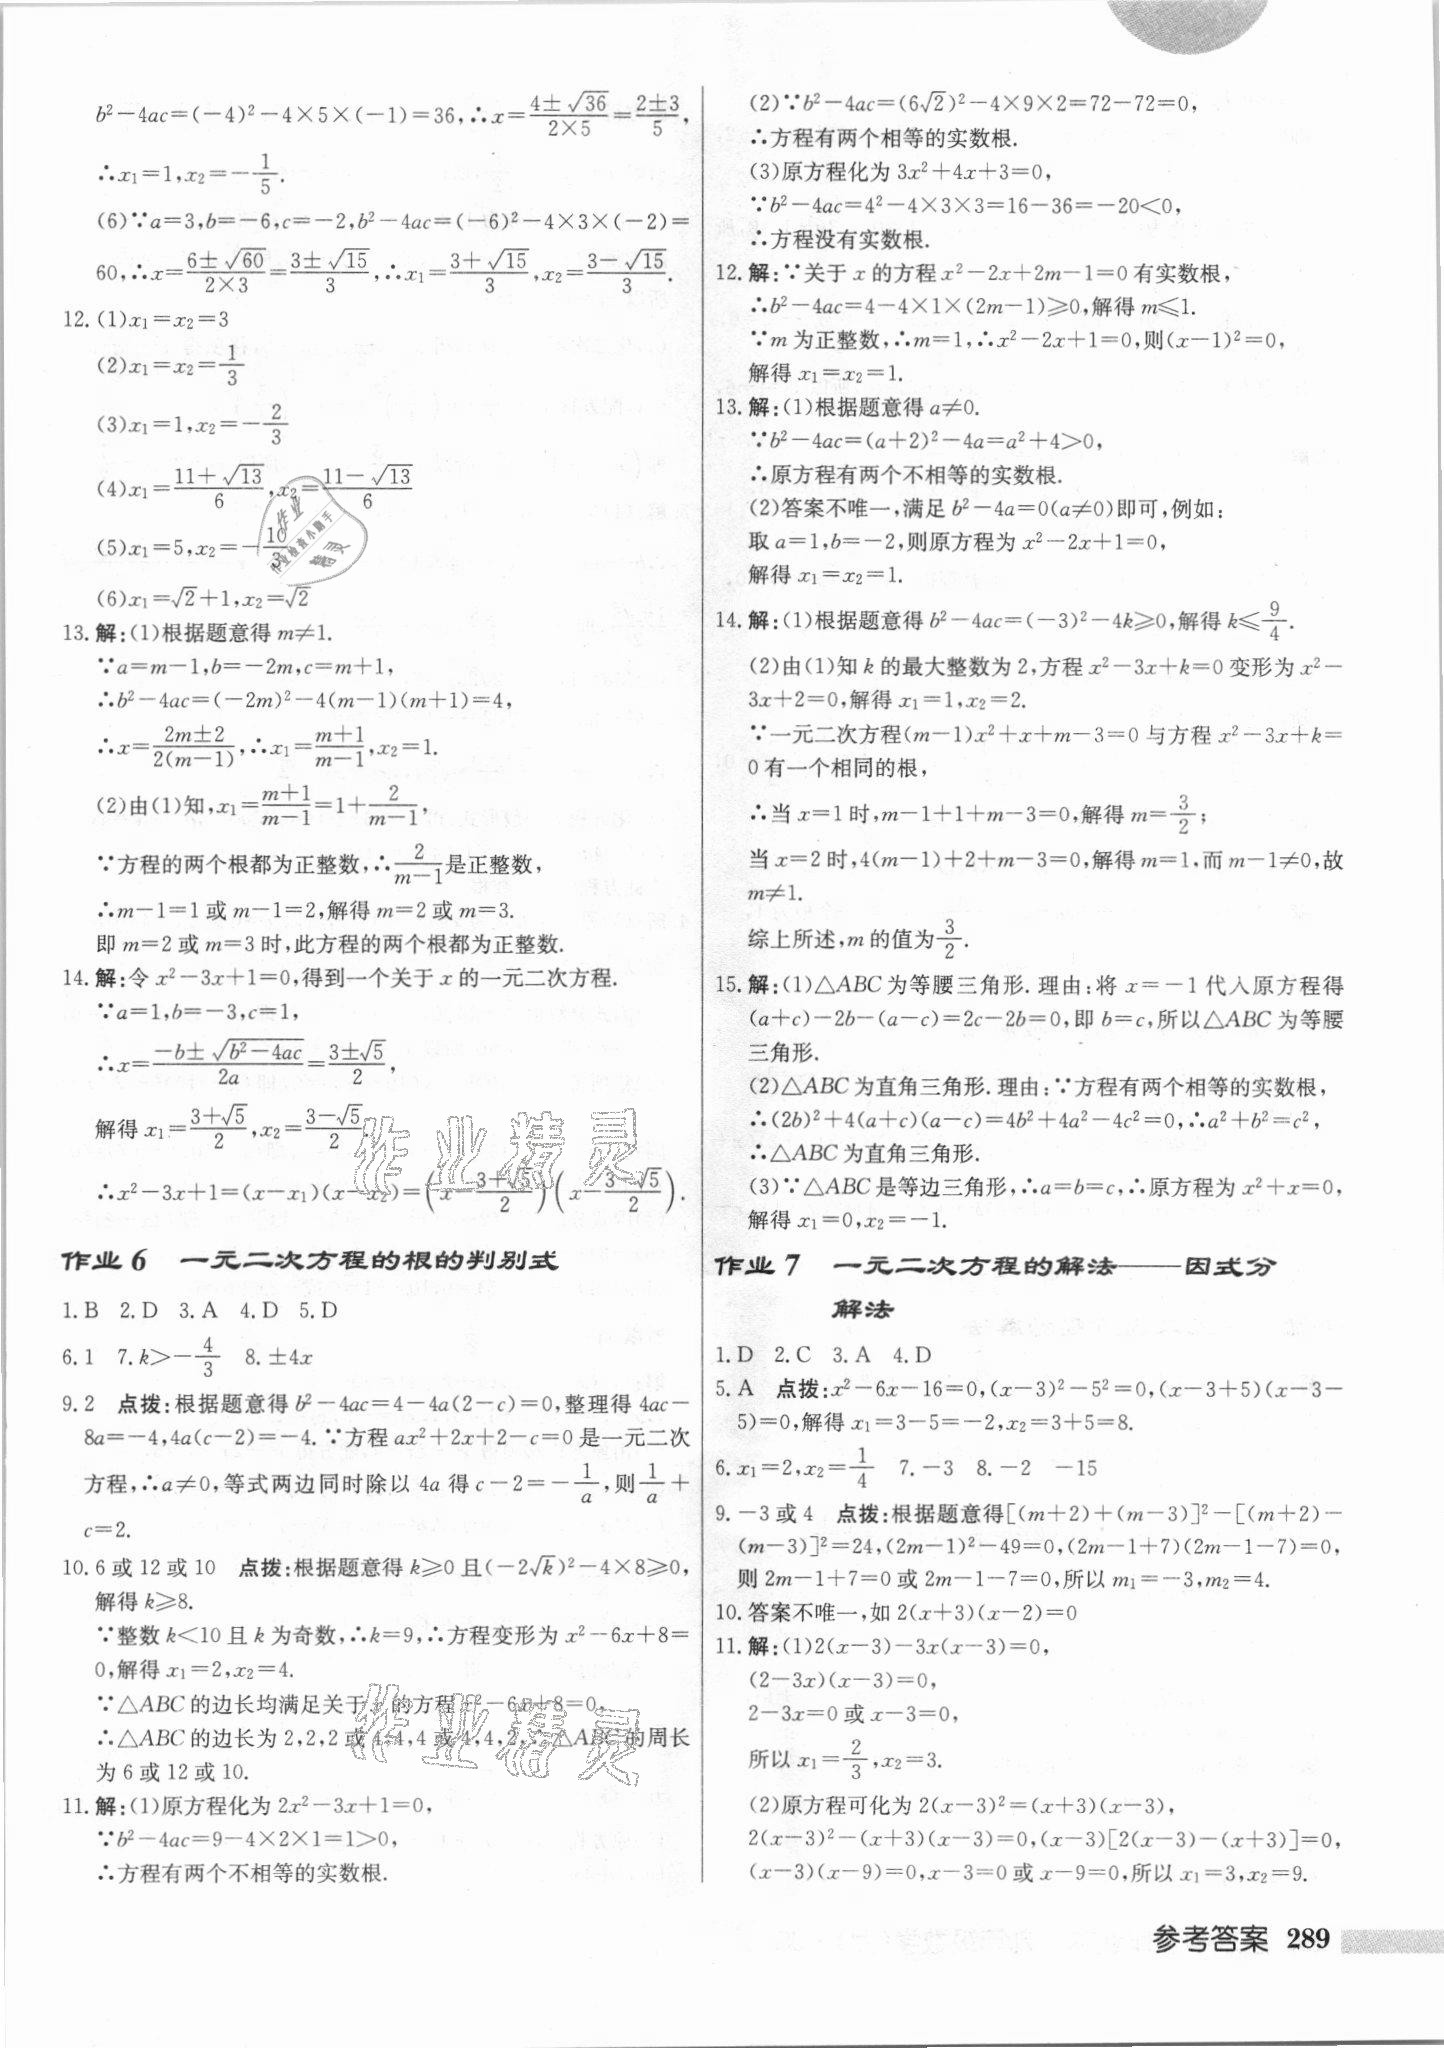 b²-4ac=(-4)²-4×5×(-1)=36,∴x=(4±√36)/(2×5)=(2±3)/5,
∴x₁=1,x₂=-1/5.
(6)∵a=3,b=-6,c=-2,b²-4ac=(-6)²-4×3×(-2)=
60,∴x=(6±√60)/(2×3)=(3±√15)/3,∴x₁=(3+√15)/3,x₂=(3-√15)/3.
12.(1)x₁=x₂=3
(2)x₁=x₂=1/3
(3)x₁=1,x₂=-2/3
(4)x₁=(11+√13)/6,x₂=(11-√13)/6
(5)x₁=5,x₂=-10/3
(6)x₁=√2+1,x₂=√2
13.解:(1)根据题意得 m≠1.
∵a=m-1,b=-2m,c=m+1,
∴b²-4ac=(-2m)²-4(m-1)(m+1)=4,
∴x=(2m±2)/(2(m-1)),∴x₁=(m+1)/(m-1),x₂=1.
(2)由(1)知,x₁=(m+1)/(m-1)=1+2/(m-1),
∵方程的两个根都为正整数,∴2/(m-1)是正整数,
∴m-1=1 或 m-1=2,解得 m=2 或 m=3.
即 m=2 或 m=3 时,此方程的两个根都为正整数.
14.解:令 x²-3x+1=0,得到一个关于 x 的一元二次方程.
∵a=1,b=-3,c=1,
∴x=(-b±√(b²-4ac))/(2a)=(3±√5)/2,
解得 x₁=(3+√5)/2,x₂=(3-√5)/2.
∴x²-3x+1=(x-x₁)(x-x₂)=(x-(3+√5)/2)(x-(3-√5)/2).
作业 6 一元二次方程的根的判别式
1.B 2.D 3.A 4.D 5.D
6.1 7.k>-4/3 8.±4x
9.2 点拨:根据题意得 b²-4ac=4-4a(2-c)=0,整理得 4ac-
8a=-4,4a(c-2)=-4.∵方程 ax²+2x+2-c=0 是一元二次
方程,∴a≠0,等式两边同时除以 4a 得 c-2=-1/a,则1/a+
c=2.
10.6 或 12 或 10 点拨:根据题意得 k≥0 且(-2√k)²-4×8≥0,
解得 k≥8.
∵整数 k<10 且 k 为奇数,∴k=9,∴方程变形为 x²-6x+8=
0,解得 x₁=2,x₂=4.
∵△ABC 的边长均满足关于 x 的方程 x²-6x+8=0,
∴△ABC 的边长为 2,2,2 或 4,4,4 或 4,4,2,∴△ABC 的周长
为 6 或 12 或 10.
11.解:(1)原方程化为 2x²-3x+1=0,
∵b²-4ac=9-4×2×1=1>0,
∴方程有两个不相等的实数根.
(2)∵b²-4ac=(6√2)²-4×9×2=72-72=0,
∴方程有两个相等的实数根.
(3)原方程化为 3x²+4x+3=0,
∵b²-4ac=4²-4×3×3=16-36=-20<0,
∴方程没有实数根.
12.解:∵关于 x 的方程 x²-2x+2m-1=0 有实数根,
∴b²-4ac=4-4×1×(2m-1)≥0,解得 m≤1.
∵m 为正整数,∴m=1,∴x²-2x+1=0,则(x-1)²=0,
解得 x₁=x₂=1.
13.解:(1)根据题意得 a≠0.
∵b²-4ac=(a+2)²-4a=a²+4>0,
∴原方程有两个不相等的实数根.
(2)答案不唯一,满足 b²-4a=0(a≠0)即可,例如:
取 a=1,b=-2,则原方程为 x²-2x+1=0,
解得 x₁=x₂=1.
14.解:(1)根据题意得 b²-4ac=(-3)²-4k≥0,解得 k≤9/4.
(2)由(1)知 k 的最大整数为 2,方程 x²-3x+k=0 变形为 x²-
3x+2=0,解得 x₁=1,x₂=2.
∵一元二次方程(m-1)x²+x+m-3=0 与方程 x²-3x+k=
0 有一个相同的根,
∴当 x=1 时,m-1+1+m-3=0,解得 m=3/2;
当 x=2 时,4(m-1)+2+m-3=0,解得 m=1,而 m-1≠0,故
m≠1.
综上所述,m 的值为3/2.
15.解:(1)△ABC 为等腰三角形.理由:将 x=-1 代入原方程得
(a+c)-2b-(a-c)=2c-2b=0,即 b=c,所以△ABC 为等腰
三角形.
(2)△ABC 为直角三角形.理由:∵方程有两个相等的实数根,
∴(2b)²+4(a+c)(a-c)=4b²+4a²-4c²=0,∴a²+b²=c²,
∴△ABC 为直角三角形.
(3)∵△ABC 是等边三角形,∴a=b=c,∴原方程为 x²+x=0,
解得 x₁=0,x₂=-1.
作业 7 一元二次方程的解法——因式分
解法
1.D 2.C 3.A 4.D
5.A 点拨:x²-6x-16=0,(x-3)²-5²=0,(x-3+5)(x-3-
5)=0,解得 x₁=3-5=-2,x₂=3+5=8.
6.x₁=2,x₂=1/4 7.-3 8.-2 -15
9.-3 或 4 点拨:根据题意得[(m+2)+(m-3)]²-[(m+2)-
(m-3)]²=24,(2m-1)²-49=0,(2m-1+7)(2m-1-7)=0,
则 2m-1+7=0 或 2m-1-7=0,所以 m₁=-3,m₂=4.
10.答案不唯一,如 2(x+3)(x-2)=0
11.解:(1)2(x-3)-3x(x-3)=0,
(2-3x)(x-3)=0,
2-3x=0 或 x-3=0,
所以 x₁=2/3,x₂=3.
(2)原方程可化为 2(x-3)²=(x+3)(x-3),
2(x-3)²-(x+3)(x-3)=0,(x-3)[2(x-3)-(x+3)]=0,
(x-3)(x-9)=0,x-3=0 或 x-9=0,所以 x₁=3,x₂=9.
参考答案 289
作业精灵
作业精灵